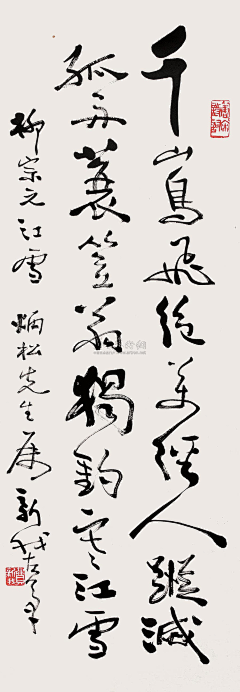 千山鳥飛絕萬徑人蹤滅
孤舟蓑笠翁獨釣寒江雪
柳宗元江雪 炳松先生屬 新我左筆